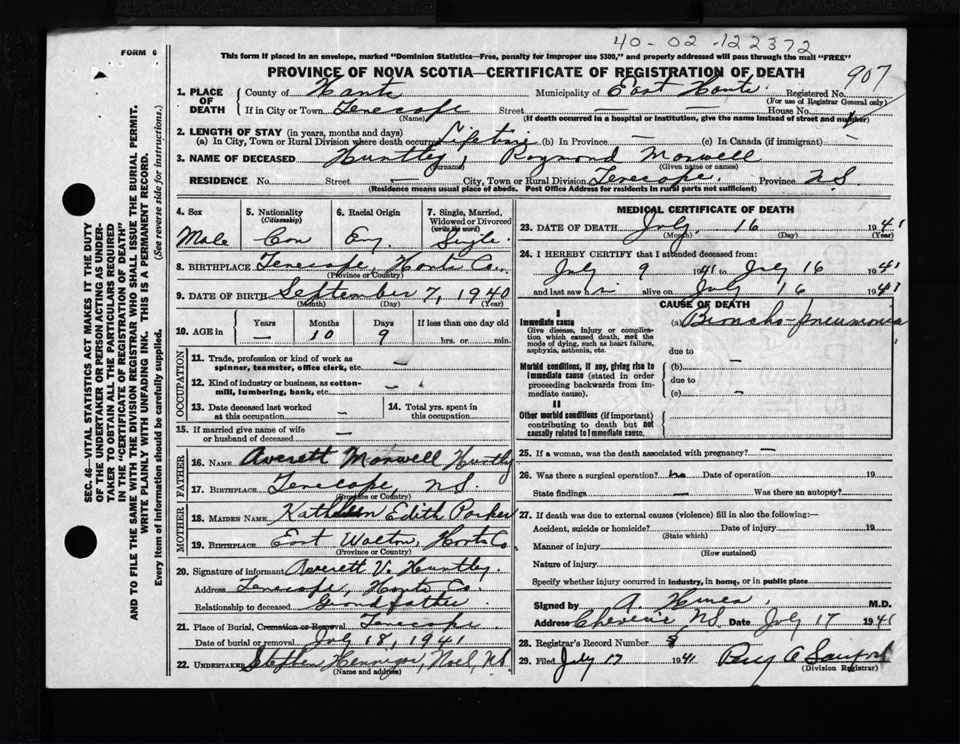 40-02-122372
FORM 6
This form if placed in an envelope, marked "Dominion Statistics—Free, penalty for improper use $300," and properly addressed will pass through the mail "FREE"
PROVINCE OF NOVA SCOTIA—CERTIFICATE OF REGISTRATION OF DEATH
907
1. PLACE OF DEATH County of Hants Municipality of East Hants Registered No.
(For use of Registrar General only)
If in City or Town Tenecape Street House No.
(Name) (If death occurred in a hospital or institution, give the name instead of street and number)
2. LENGTH OF STAY (in years, months and days)
(a) In City, Town or Rural Division where death occurred Lifetime (b) In Province — (c) In Canada (if immigrant)
3. NAME OF DECEASED Huntley, Raymond Maxwell
(Surname) (Given name or names)
RESIDENCE No. Street - City, Town or Rural Division Tenecape. Province N.S.
(Residence means usual place of abode. Post Office Address for residents in rural parts not sufficient)
4. Sex Male
5. Nationality (Citizenship) Can
6. Racial Origin Eng.
7. Single, Married, Widowed or Divorced (write the word) Single
8. BIRTHPLACE Tenecape, Hants Co.
(Province or Country)
9. DATE OF BIRTH September 7, 1940
(Month) (Day) (Year)
10. AGE in Years — Months 10 Days 9 If less than one day old
hrs. or min.
OCCUPATION
11. Trade, profession or kind of work as spinner, teamster, office clerk, etc. —
12. Kind of industry or business, as cotton-mill, lumbering, bank, etc. -
13. Date deceased last worked at this occupation -
14. Total yrs. spent in this occupation
15. If married give name of wife or husband of deceased —
FATHER
16. NAME Averett Maxwell Huntley
17. BIRTHPLACE Tenecape, N.S.
(Province or Country)
MOTHER
18. MAIDEN NAME Kathleen Edith Parker
19. BIRTHPLACE East Walton, Hants Co
(Province or Country)
20. Signature of informant Averett V. Huntley.
Address Tenecape, Hants Co.
Relationship to deceased Grandfather
21. Place of Burial, Cremation or Removal Tenecape
Date of burial or removal July 18, 1941
22. UNDERTAKER Stephen Hennigar, Noel, N.S.
(Name and address)
MEDICAL CERTIFICATE OF DEATH
23. DATE OF DEATH July 16 1941
(Month) (Day) (Year)
24. I HEREBY CERTIFY that I attended deceased from:
July 9 1941 to July 16 1941
and last saw alive on July 16 1941
CAUSE OF DEATH
I
Immediate cause (a) Broncho-pneumonia
Give disease, injury or complication which caused death, not the mode of dying, such as heart failure, asphyxia, asthenia, etc.
due to
Morbid conditions, if any, giving rise to immediate cause (stated in order proceeding backwards from immediate cause).
(b) -
due to
(c) -
II
Other morbid conditions (if important) contributing to death but not causally related to immediate cause.
25. If a woman, was the death associated with pregnancy? —
26. Was there a surgical operation? no Date of operation 19
State findings — Was there an autopsy?
27. If death was due to external causes (violence) fill in also the following:—
Accident, suicide or homicide? Date of injury 19
(State which)
Manner of injury
(How sustained)
Nature of injury
Specify whether injury occurred in industry, in home, or in public place
Signed by A. M.D.
Address Cheverie N.S. Date July 17 1941
28. Registrar's Record Number 8
29. Filed July 17 1941 Percy A Sanford
(Division Registrar)
SEC. 46—VITAL STATISTICS ACT MAKES IT THE DUTY
OF THE UNDERTAKER OR PERSON ACTING AS UNDERTAKER
TO OBTAIN ALL THE PARTICULARS REQUIRED
IN THE "CERTIFICATE OF REGISTRATION OF DEATH"
AND TO FILE THE SAME WITH THE DIVISION REGISTRAR WHO SHALL ISSUE THE BURIAL PERMIT.
WRITE PLAINLY WITH UNFADING INK. THIS IS A PERMANENT RECORD.
Every item of information should be carefully supplied. (See reverse side for instructions.)